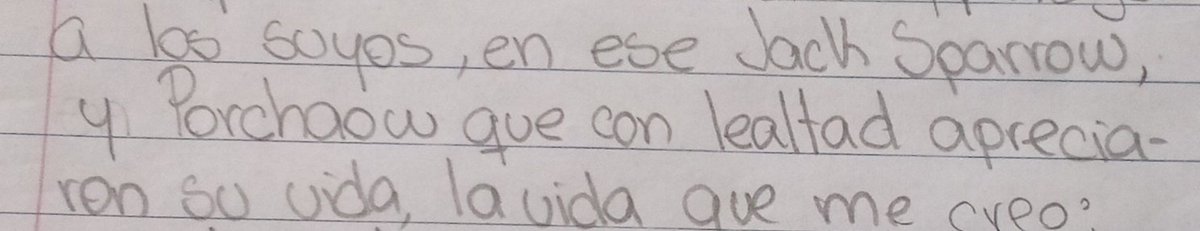 a los suyos, en ese Jach Sparrow,
y Porchaow que con lealtad aprecia-
ron su vida, la vida que me creo: